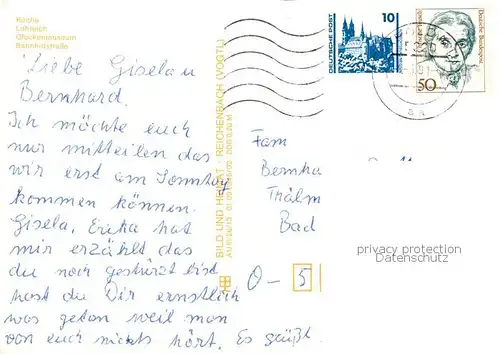 Kirche
Lohteich
Glockenmuseum
Bahnhofstraße
Liebe Gisela u
Bernhard.
Ich möchte euch
nur mitteilen das
wir erst am Sonntag
kommen können.
Gisela, Erika hat
mir erzählt das
du noch gestürzt bist
hast du Dir ernstlich
was getan weil man
von euch nichts hört. Es grüßt
BILD UND HEIMAT · REICHENBACH (VOGTL)
DEUTSCHE POST
10
Deutsche Bundespost
50
Fam
Bernha
Thälm
Bad
O - 5
privacy protection
Datenschutz